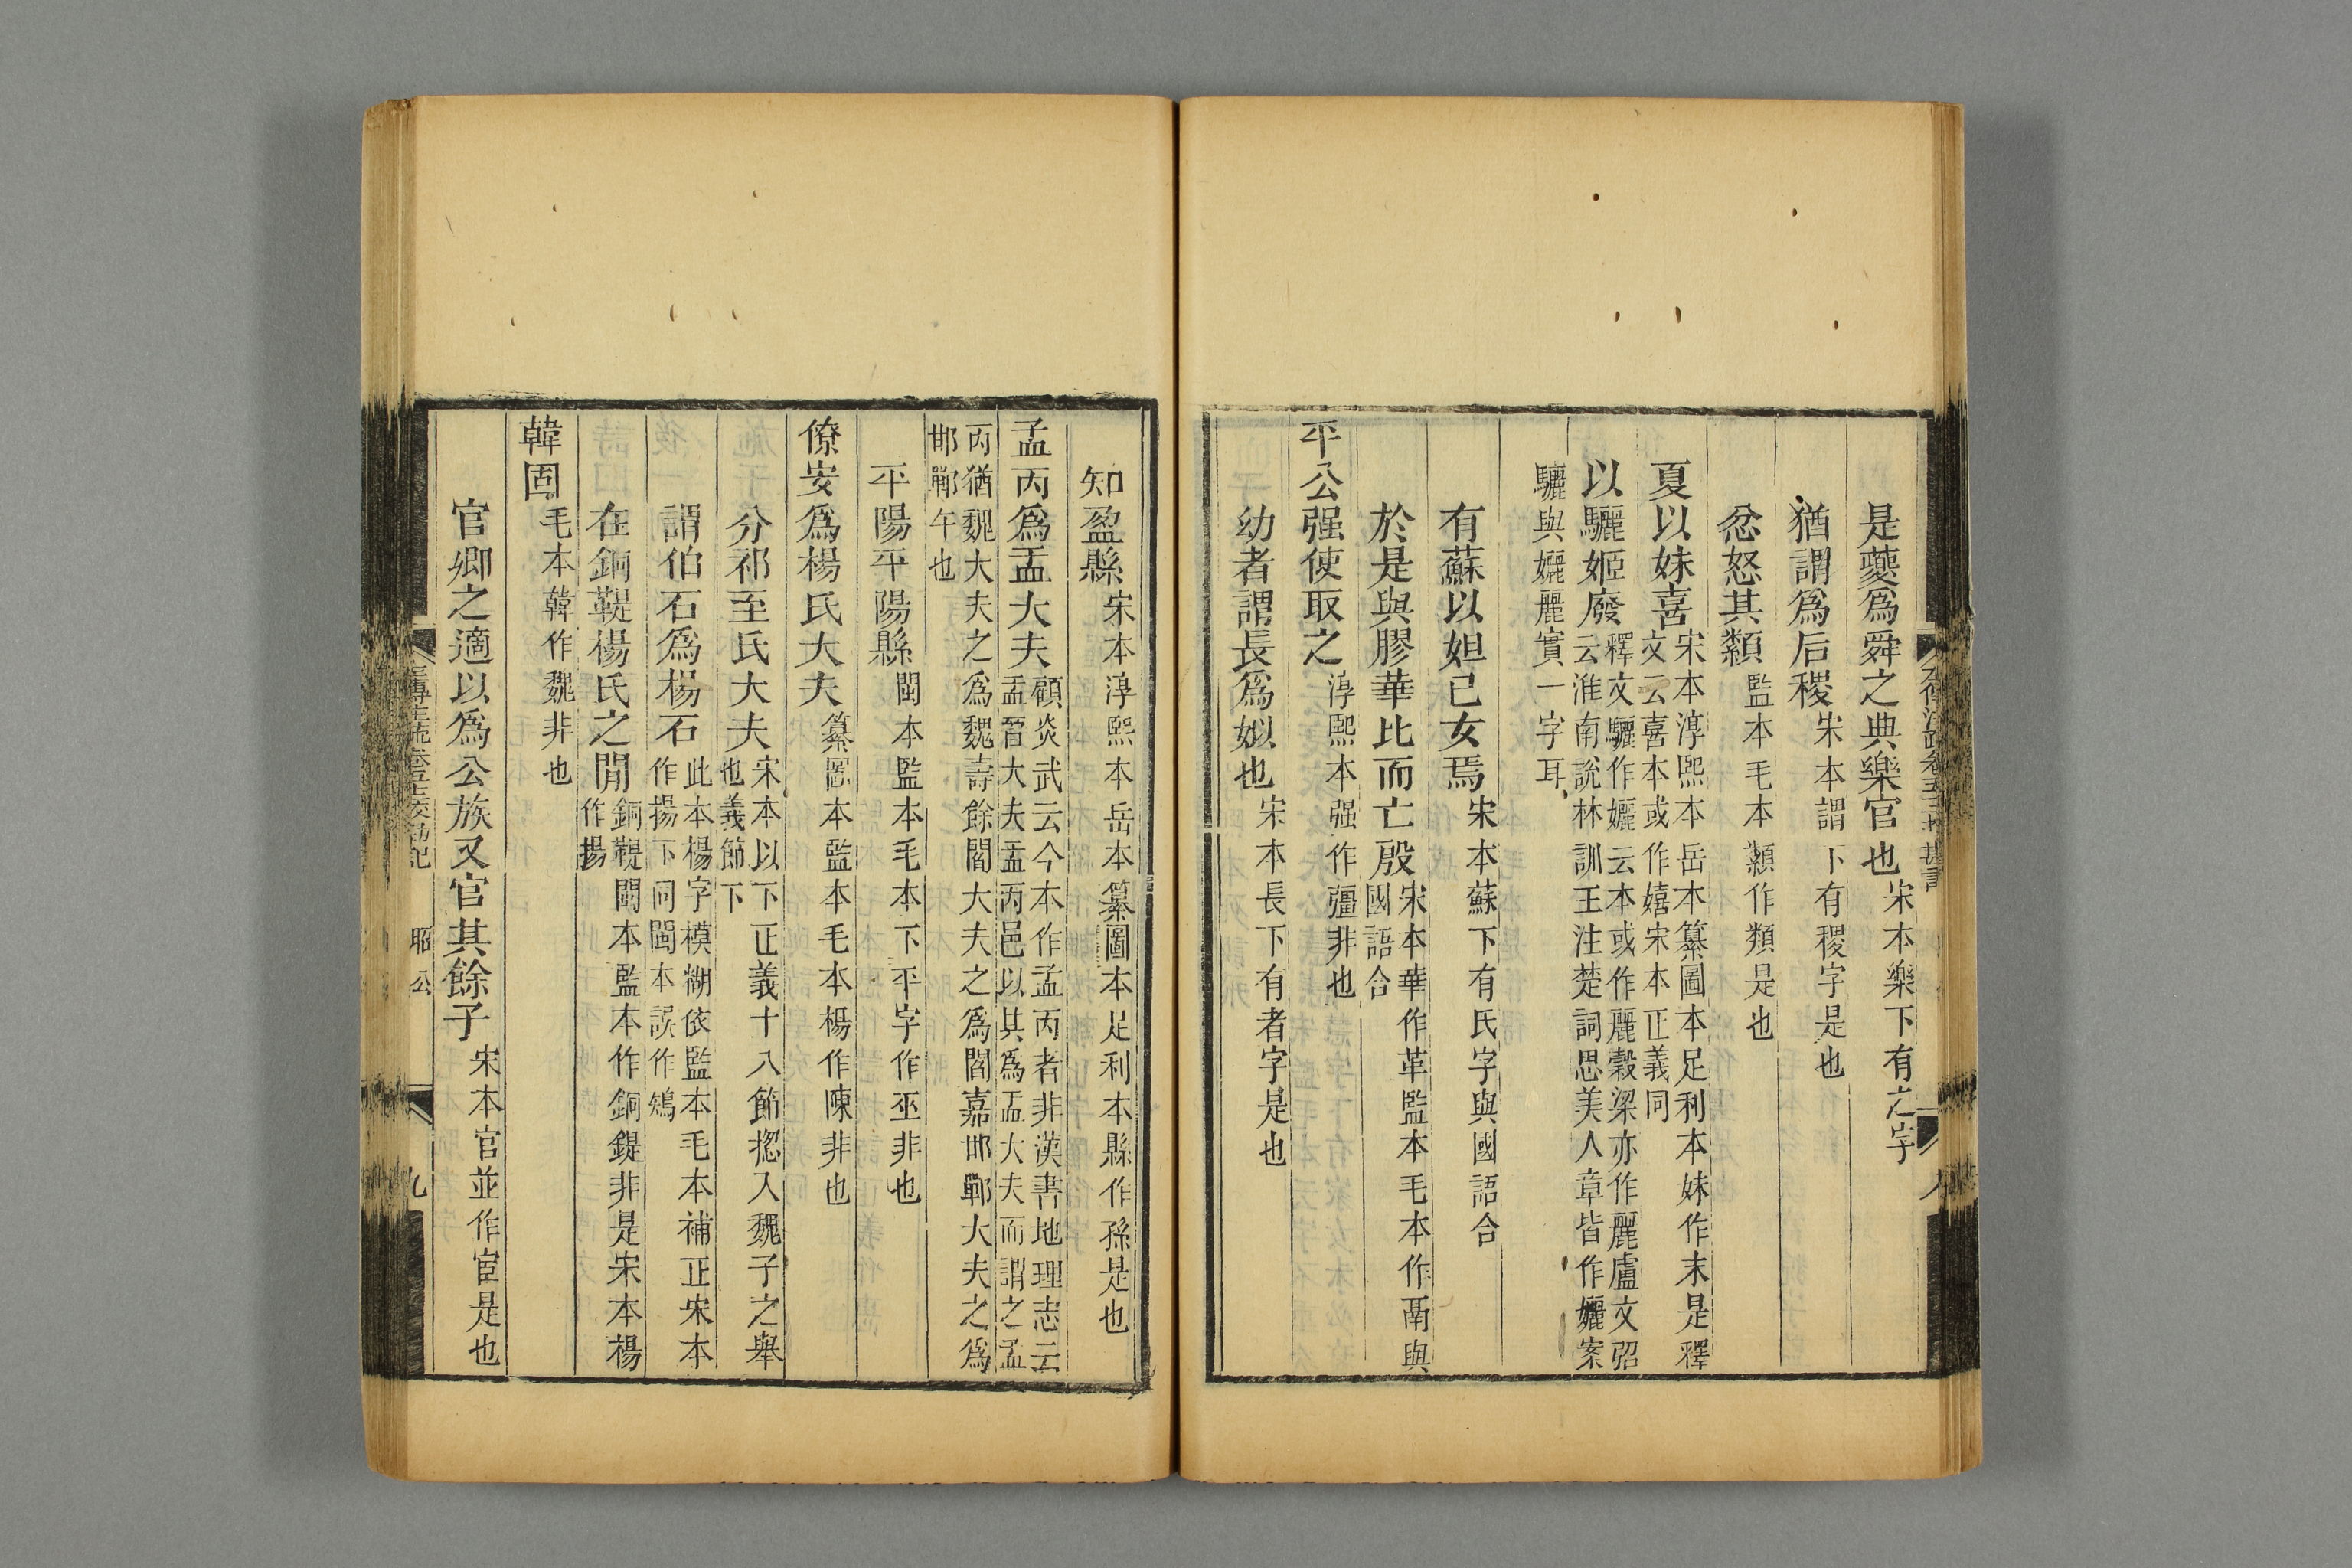 是夔爲舜之典樂官也宋本樂下有之字
猶謂爲后稷宋本謂下有稷字是也
忿怒其纇監本毛本纇作類是也
夏以妹喜宋本淳熙本岳本纂圖本足利本妹作末是釋
文云喜本或作嬉宋本正義同
以驪姬廢釋文驪作孋云本或作麗穀梁亦作麗盧文弨
云淮南說林訓王注楚詞思美人章皆作孋案
驪與孋麗實一字耳
有蘇以妲己女焉宋本蘇下有氏字與國語合
於是與膠華比而亡殷宋本華作革監本毛本作鬲與
國語合
平公强使取之淳熙本强作彊非也
幼者謂長爲姒也宋本長下有者字是也
知盈縣宋本淳熙本岳本纂圖本足利本縣作孫是也
孟丙爲盂大夫顧炎武云今本作孟丙者非漢書地理志云
盂晉大夫盂丙邑以其爲盂大夫而謂之盂
丙猶魏大夫之爲魏壽餘閻大夫之爲閻嘉邯鄲大夫之爲
邯鄲午也
平陽平陽縣閩本監本毛本下平字作巫非也
僚安爲楊氏大夫纂圖本監本毛本楊作陳非也
分祁至氏大夫宋本以下正義十八節揔入魏子之舉
也義節下
謂伯石爲楊石此本楊字模糊依監本毛本補正宋本
作揚下同閩本誤作鴆
在銅鞮楊氏之閒銅鞮閩本監本作銅鍉非是宋本楊
作揚
韓固毛本韓作魏非也
官卿之適以爲公族又官其餘子宋本官並作宦是也
昭公
九